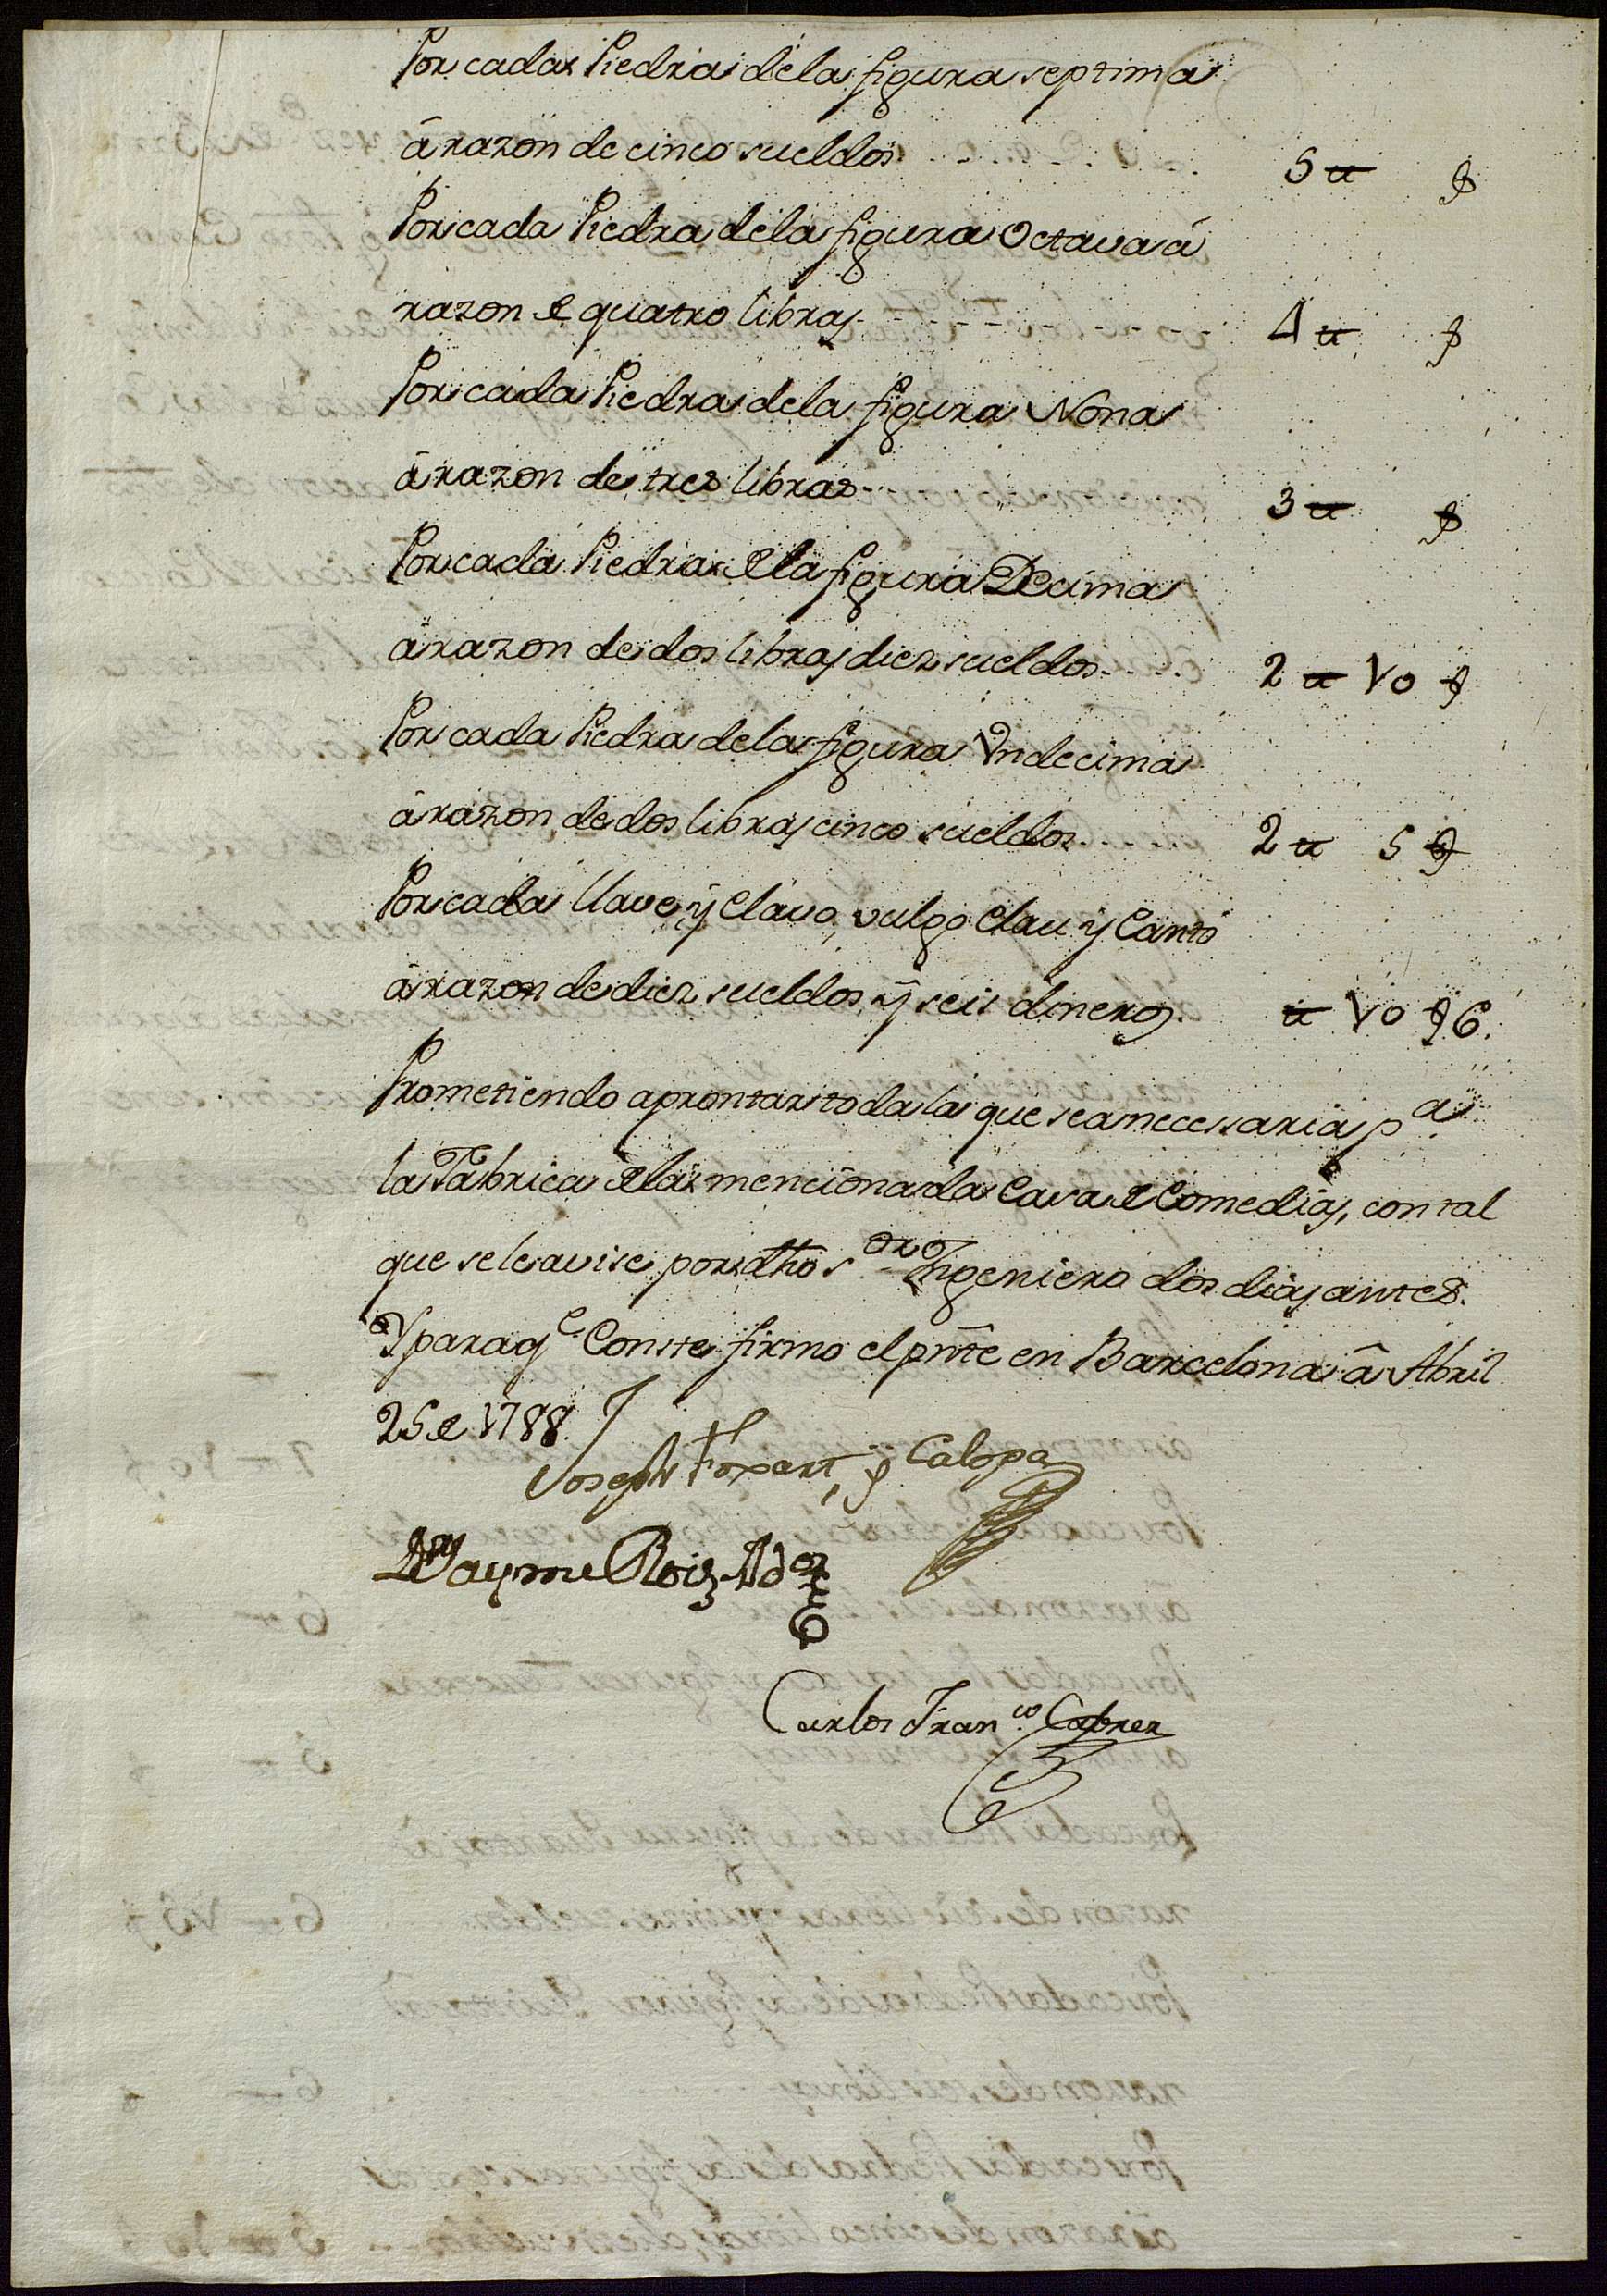 Por cada Piedra de la figura septima
â razon de cinco sueldos. . . . . . 5 ₶ ꝭ
Por cada Piedra de la figura Octava â
razon de quatro libras. . . . . . 4 ₶ ꝭ
Por cada Piedra de la figura Nona
â razon de tres libras. . . 3 ₶ ꝭ
Por cada Piedra de la figura Decima
â razon de dos libras diez sueldos. . . . 2 ₶ 10 ꝭ
Por cada Piedra de la figura Vndecima
â razon de dos libras cinco sueldos. . . 2 ₶ 5 ꝭ
Por cada llave, y Clavo, vulgo Clau y Cantô
â razon de diez sueldos y seis dineros. ₶ 10 ꝭ 6.
Prometiendo aprontar toda la que sea necessaria pª
la Fabrica de la mencionada Casa de Comedias, con tal
que se le avise por dho Sor Ingeniero dos dias antes.
Y para qe Conste firmo el pnte en Barcelona â Abril
25 de 1788.
Joseph Foxart, y Calopa
Jayme Roig
Carlos Franco Cabrer